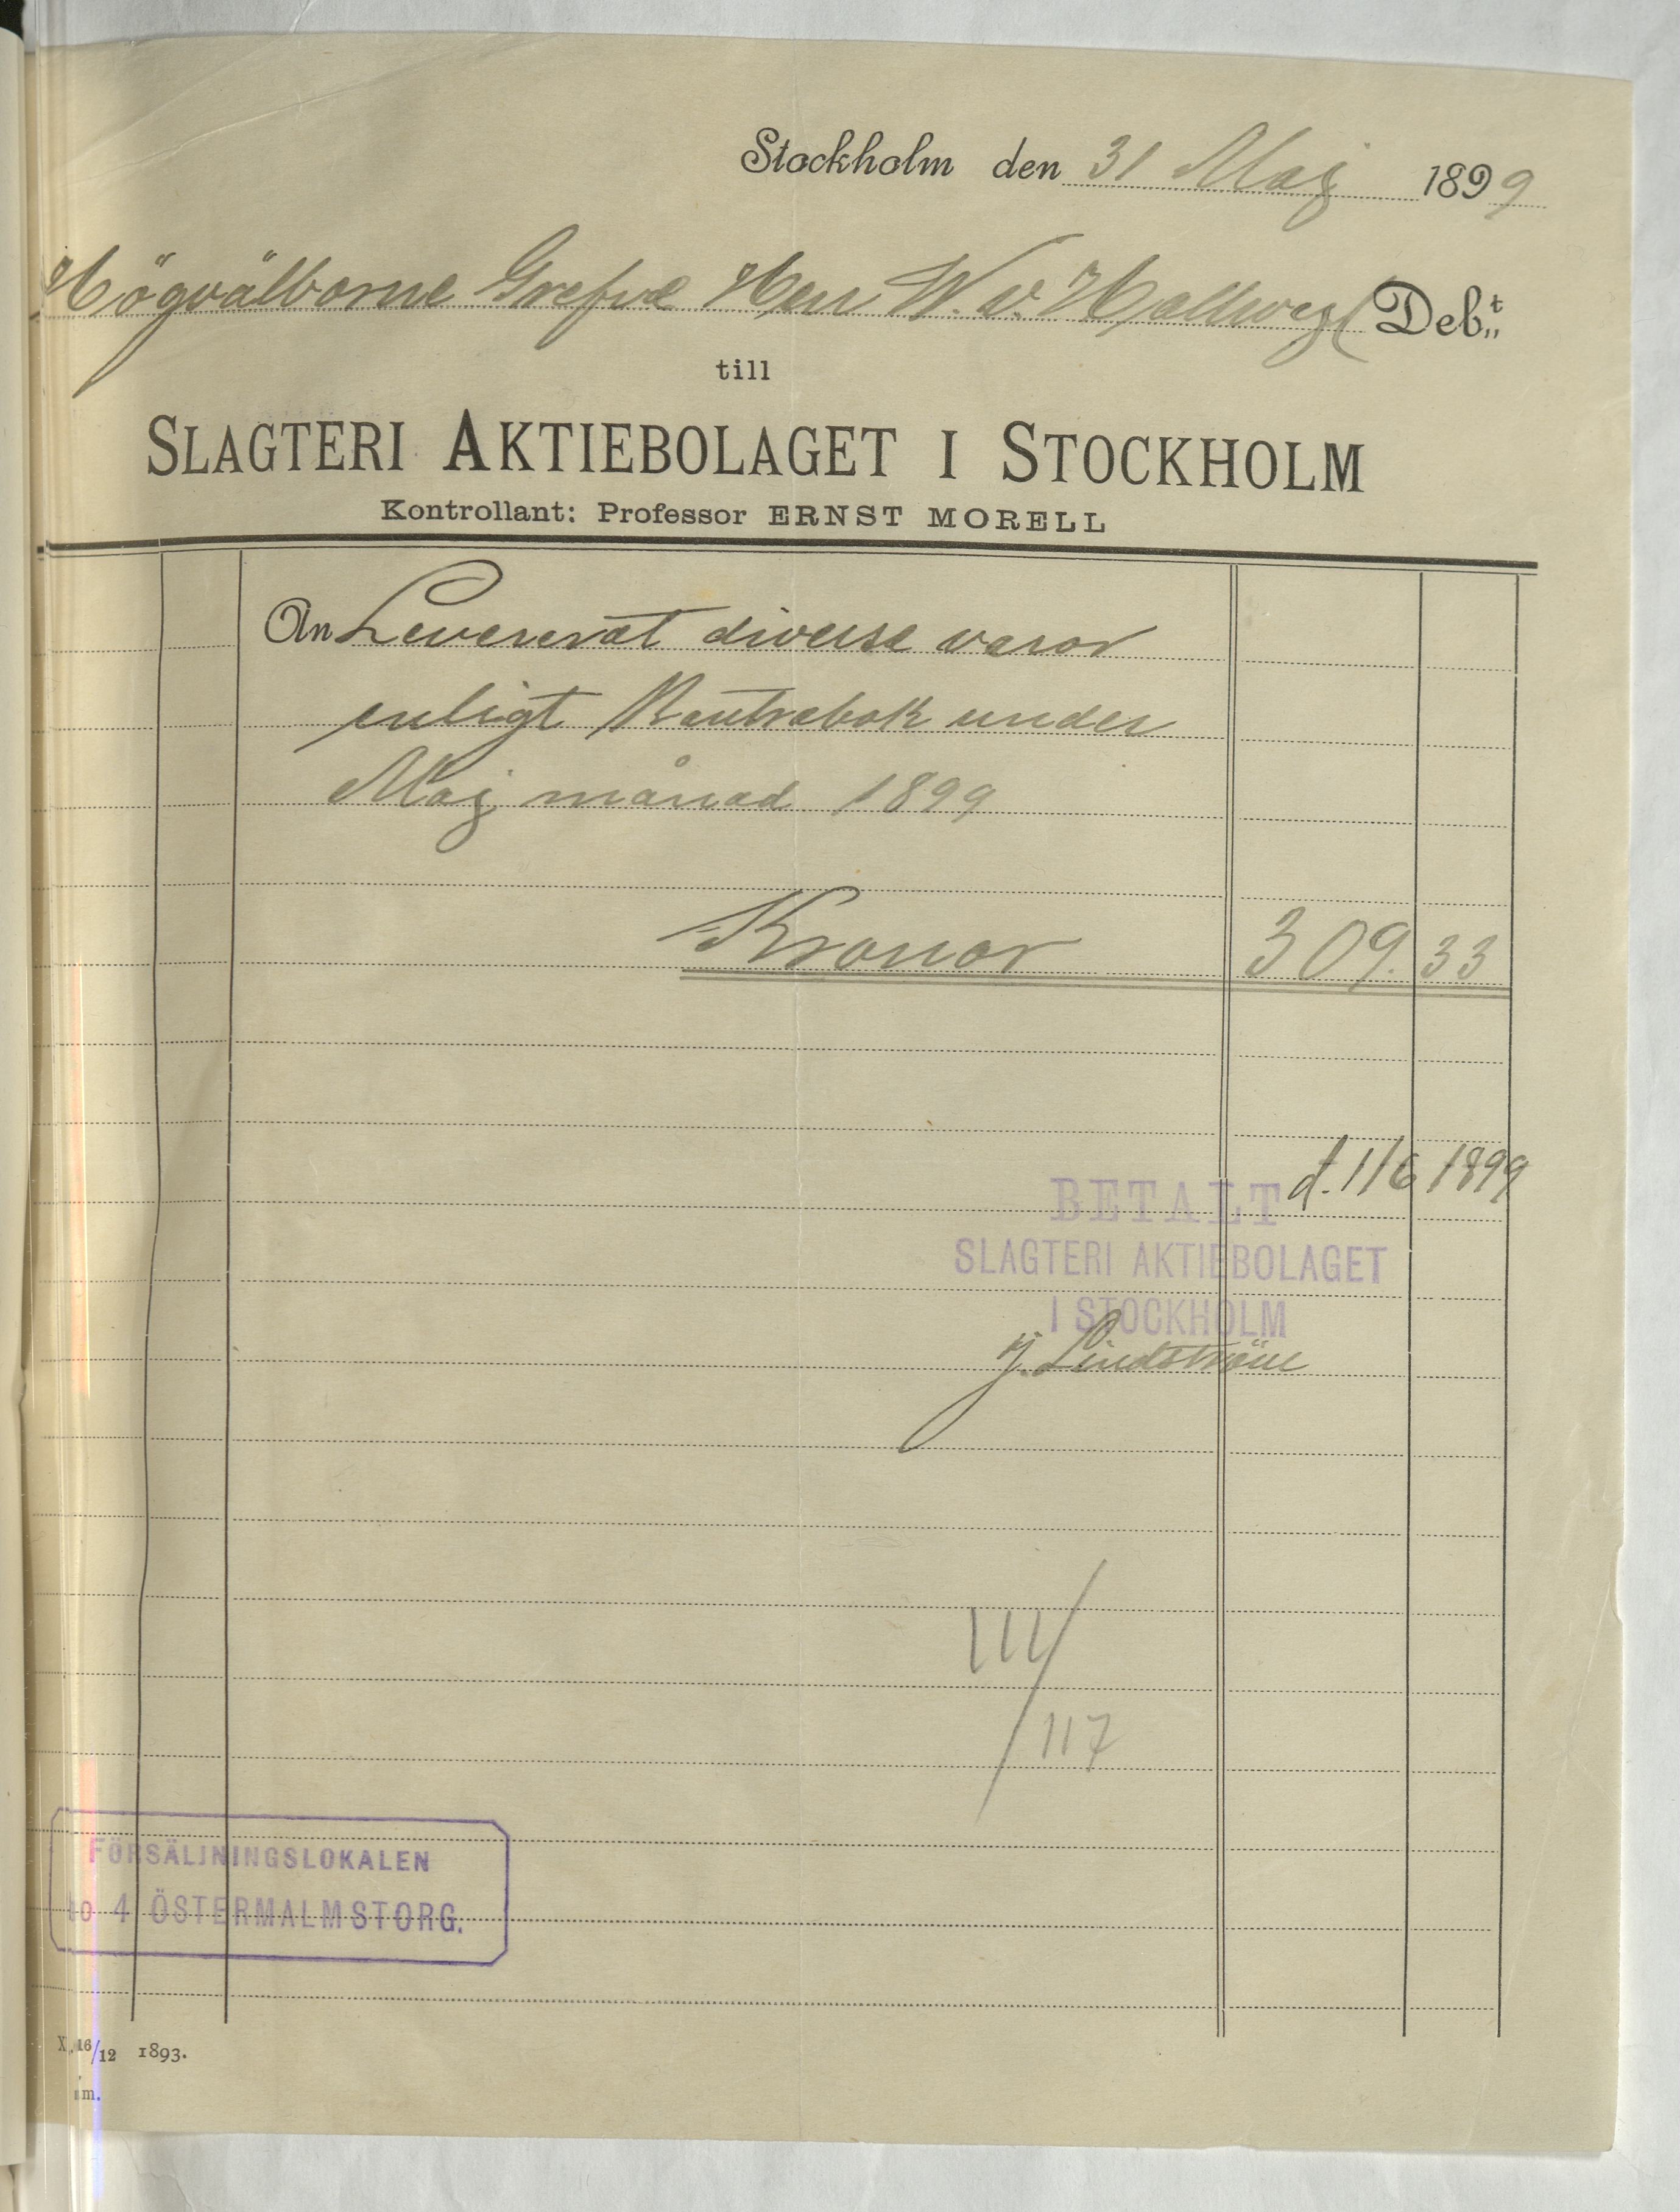 Stockholm den 31 Maj 1899
Högvälborne Grefve Herr W. v. Hallwyl Deb:t
till
SLAGTERI AKTIEBOLAGET I STOCKHOLM
Kontrollant: Professor ERNST MORELL
An Levererat diverse varor
enligt Kontrabok under
Maj månad 1899
Kronor 309. 33
d. 1/6 1899
BETALT
SLAGTERI AKTIEBOLAGET
I STOCKHOLM
Lindström
111/117
FÖRSÄLJNINGSLOKALEN
4 ÖSTERMALMSTORG.
16/12 1893.